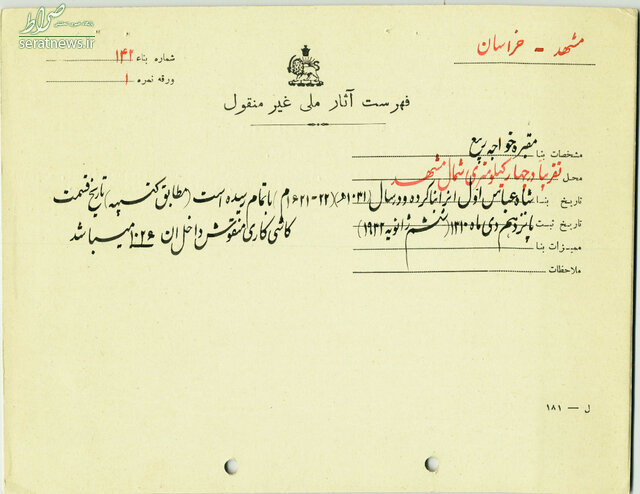 صراط
پایگاه خبری تحلیلی
seratnews.ir
مشهد - خراسان
شماره بناء ۱۴۲
ورقه نمره ۱
فهرست آثار ملی غیر منقول
مشخصات بنا مقبره خواجه ربیع
محل تقریباً در چهار کیلومتری شمال مشهد
تاریخ بنا شاه عباس اول انرا بنا کرده و در سال (۱۰۳۱ه) (۲۲-۱۶۲۱م) باتمام رسیده است (مطابق کتیبه) تاریخ قسمت
کاشی کاری منقوش داخل ان ۱۰۲۶ میباشد
تاریخ ثبت پانزدهم دی ماه ۱۳۱۰ (ششم ژانویه ۱۹۳۲)
ممیزات بنا
ملاحظات
ل — ۱۸۱